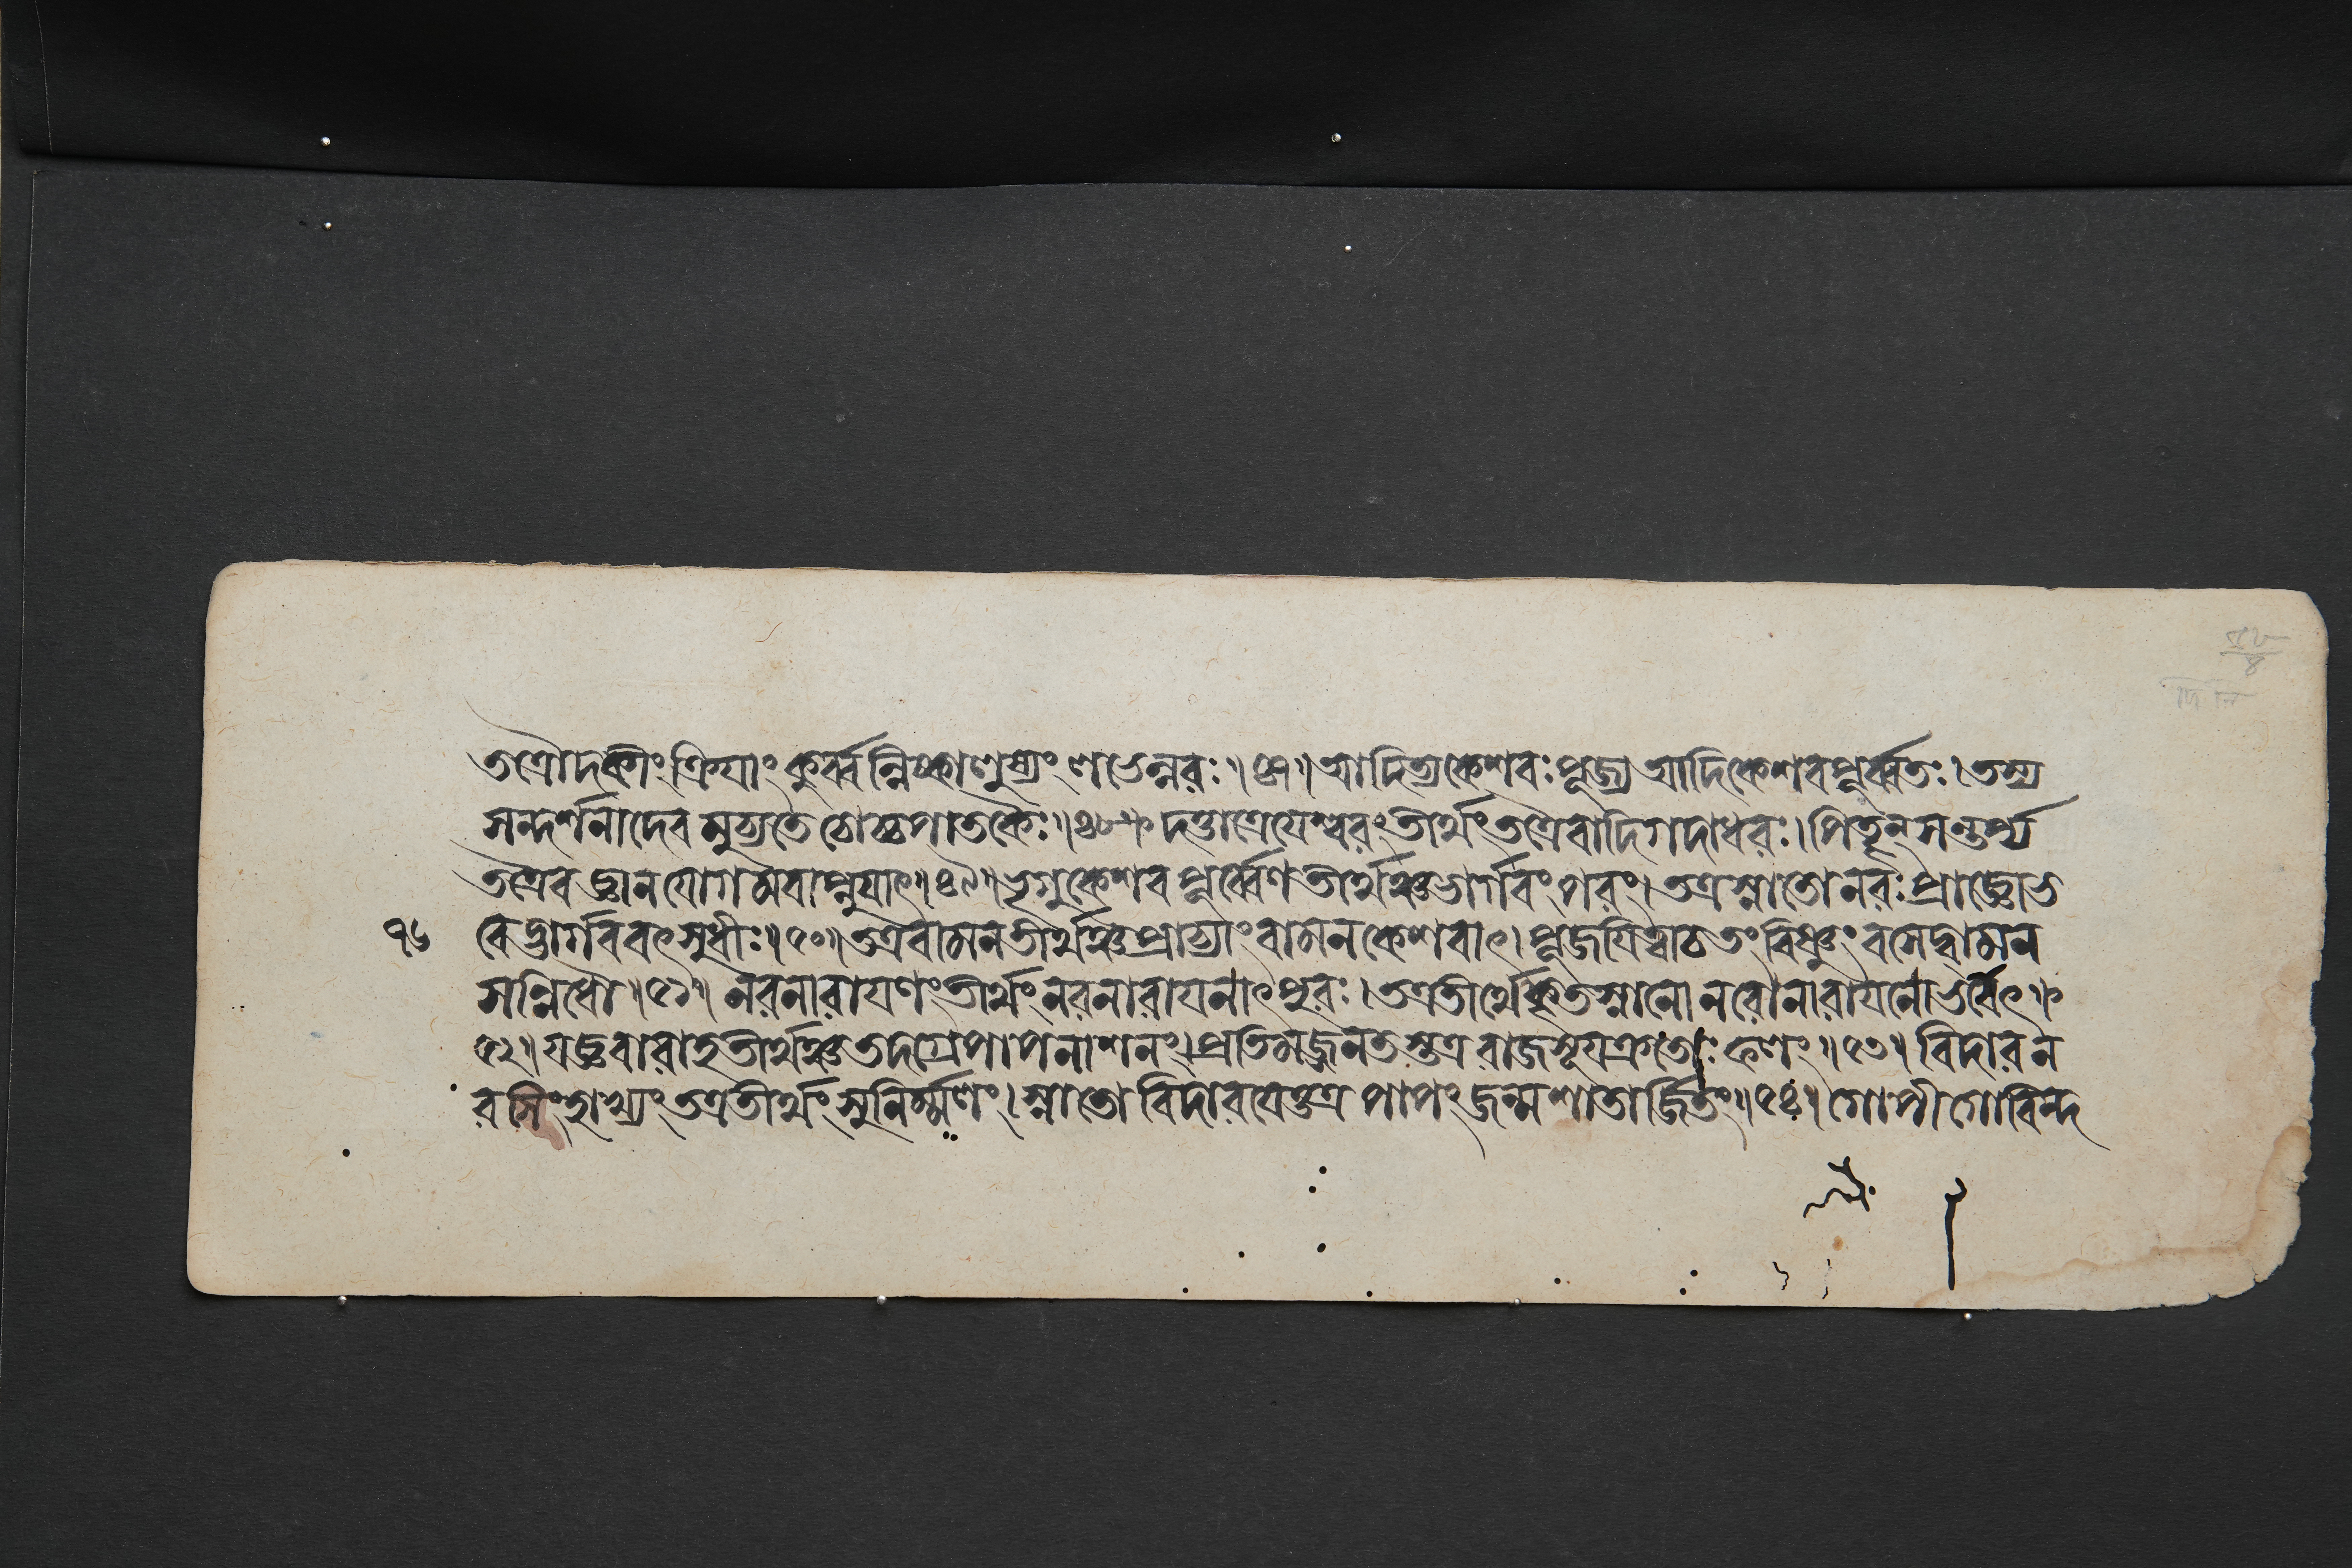 তত্রৌদকীং ক্রিয়াং কুর্ব্বন্নিষ্কাণৃষ্যং ণভেন্নরঃ॥ ৪৭॥ আদিত্যকেশবঃ পূজ্য আদিকেশবপূর্ব্বতঃ। তস্য
সন্দর্শনাদেব মুচ্যতে চোচ্চপাতকৈঃ॥ ৪৮॥ দত্তাত্রেয়েশ্বরং তীর্থং তত্রৈবাদিগদাধরঃ। পিতৄন্ সন্তর্প্য
তত্রৈব জ্ঞানযোগমবাপ্নুয়াৎ॥ ৪৯॥ ভৃগুকেশবপূর্ব্বেণ তীর্থঞ্চ ভার্গবং পরং। তত্র স্নাতো নরঃ প্রাজ্ঞো ভ
৭৬ বেদ্ভার্গববৎ সুধীঃ॥ ৫০॥ তত্র বামনতীর্থঞ্চ প্রাচ্যাং বামনকেশবাৎ। পূজয়িত্বাচ তং বিষ্ণুং বসেদ্বামন
সন্নিধৌ॥ ৫১॥ নরনারায়ণং তীর্থং নরনারায়নাৎ পুরঃ। তত্র তীর্থে কৃতস্নানো নরো নারায়নো ভবেৎ॥
৫২॥ যজ্ঞবারাহতীর্থঞ্চ তদগ্রে পাপনাশনং। প্রতিমজ্জনতস্তত্র রাজসূয়ক্রতোঃ ফণং॥ ৫৩॥ বিদারন
রসিংহাখ্যং তত্র তীর্থং সুনির্ম্মণং। স্নাতো বিদারয়েত্তত্র পাপং জন্মশাতার্জ্জিতং॥ ৫৪॥ গোপীগোবিন্দ